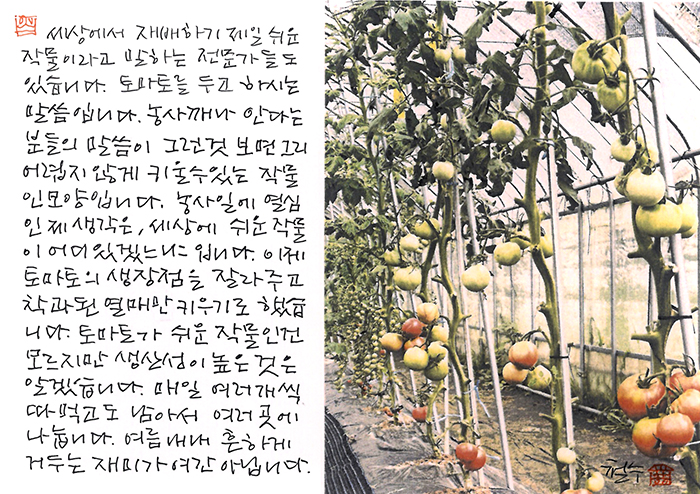 세상에서 재배하기 제일 쉬운
작물이라고 말하는 전문가들도
있습니다. 토마토를 두고 하시는
말씀입니다. 농사깨나 안다는
분들의 말씀이 그런것 보면 그리
어렵지 않게 키울수있는 작물
인모양입니다. 농사일에 열심
인 제 생각은, 세상에 쉬운 작물
이 어디있겠느냐 입니다. 이제
토마토의 생장점을 잘라주고
착과된 열매만 키우기로 했습
니다. 토마토가 쉬운 작물인건
모르지만 생산성이 높은 것은
알겠습니다. 매일 여러개씩
따먹고도 남아서 여러 곳에
나눕니다. 여름내내 흔하게
거두는 재미가 여간 아닙니다.
철수